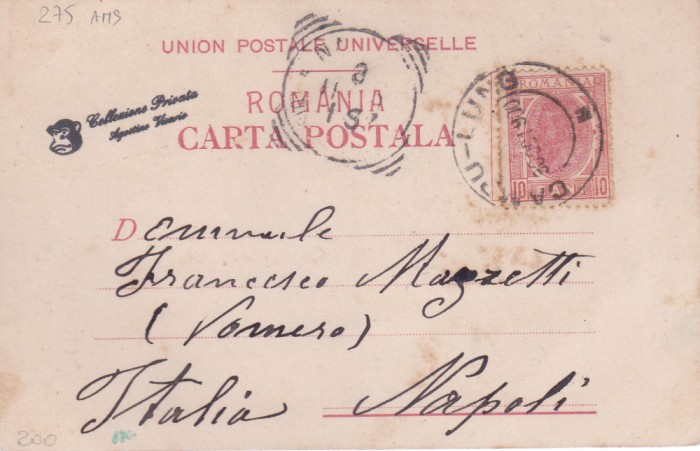 275 AMS
UNION POSTALE UNIVERSELLE
ROMANIA
CARTA POSTALA
Collezione Privata
Agostino Vicario
ROMANIA
10 10
CAMPU-LUNG
Demnule
Francesco Mazzetti
(Vomero)
Italia Napoli
200